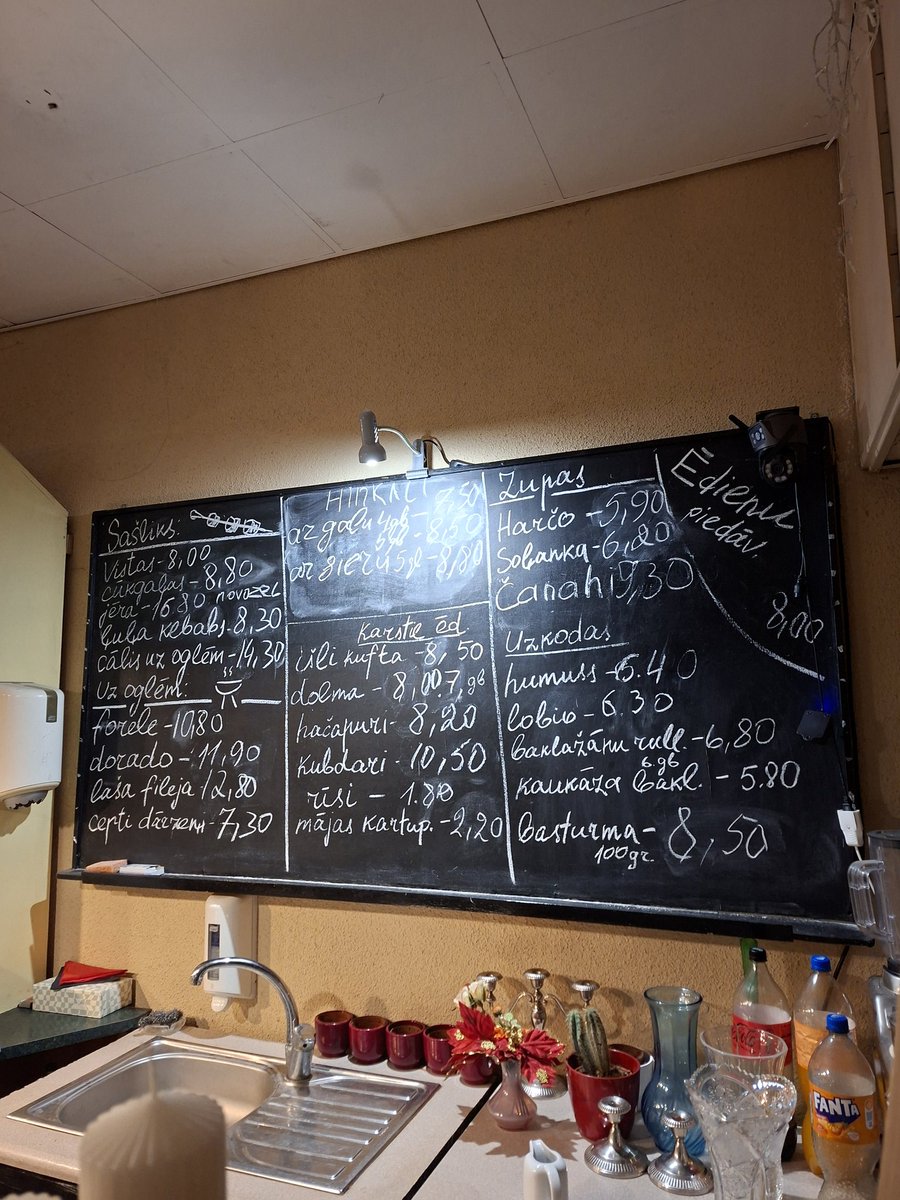 Šašliks:
Vistas-8,00
cūkgaļas-8,80
jēra-16.80 novozel
ļuļa kebabs.8,30
cālis uz oglēm-14,30
Uz oglēm:
forele-10,80
dorado-11,90
laša fileja 12,80
cepti dārzeņi-7,30
HINKALI 7,50
ar gaļu 4gb
5gb-8,50
ar sieru 5gb-8,80
Karstie ēd
išli kufta-8,50
dolma-8,00.7,gb
hačapuri-8,20
kubdari-10,50
rīsi-1.80
mājas kartup.-2,20
Zupas
Harčo-5,90
Soļanka-6,20
Čanahi 9,30
Uzkodas
humuss-5.40
lobio-6.30
baklažānu rull.-6,80
6.gb
kaukāza bakl.-5.80
basturma-8,50
100gr.
Ēdienu
piedāv.
8,00
FANTA